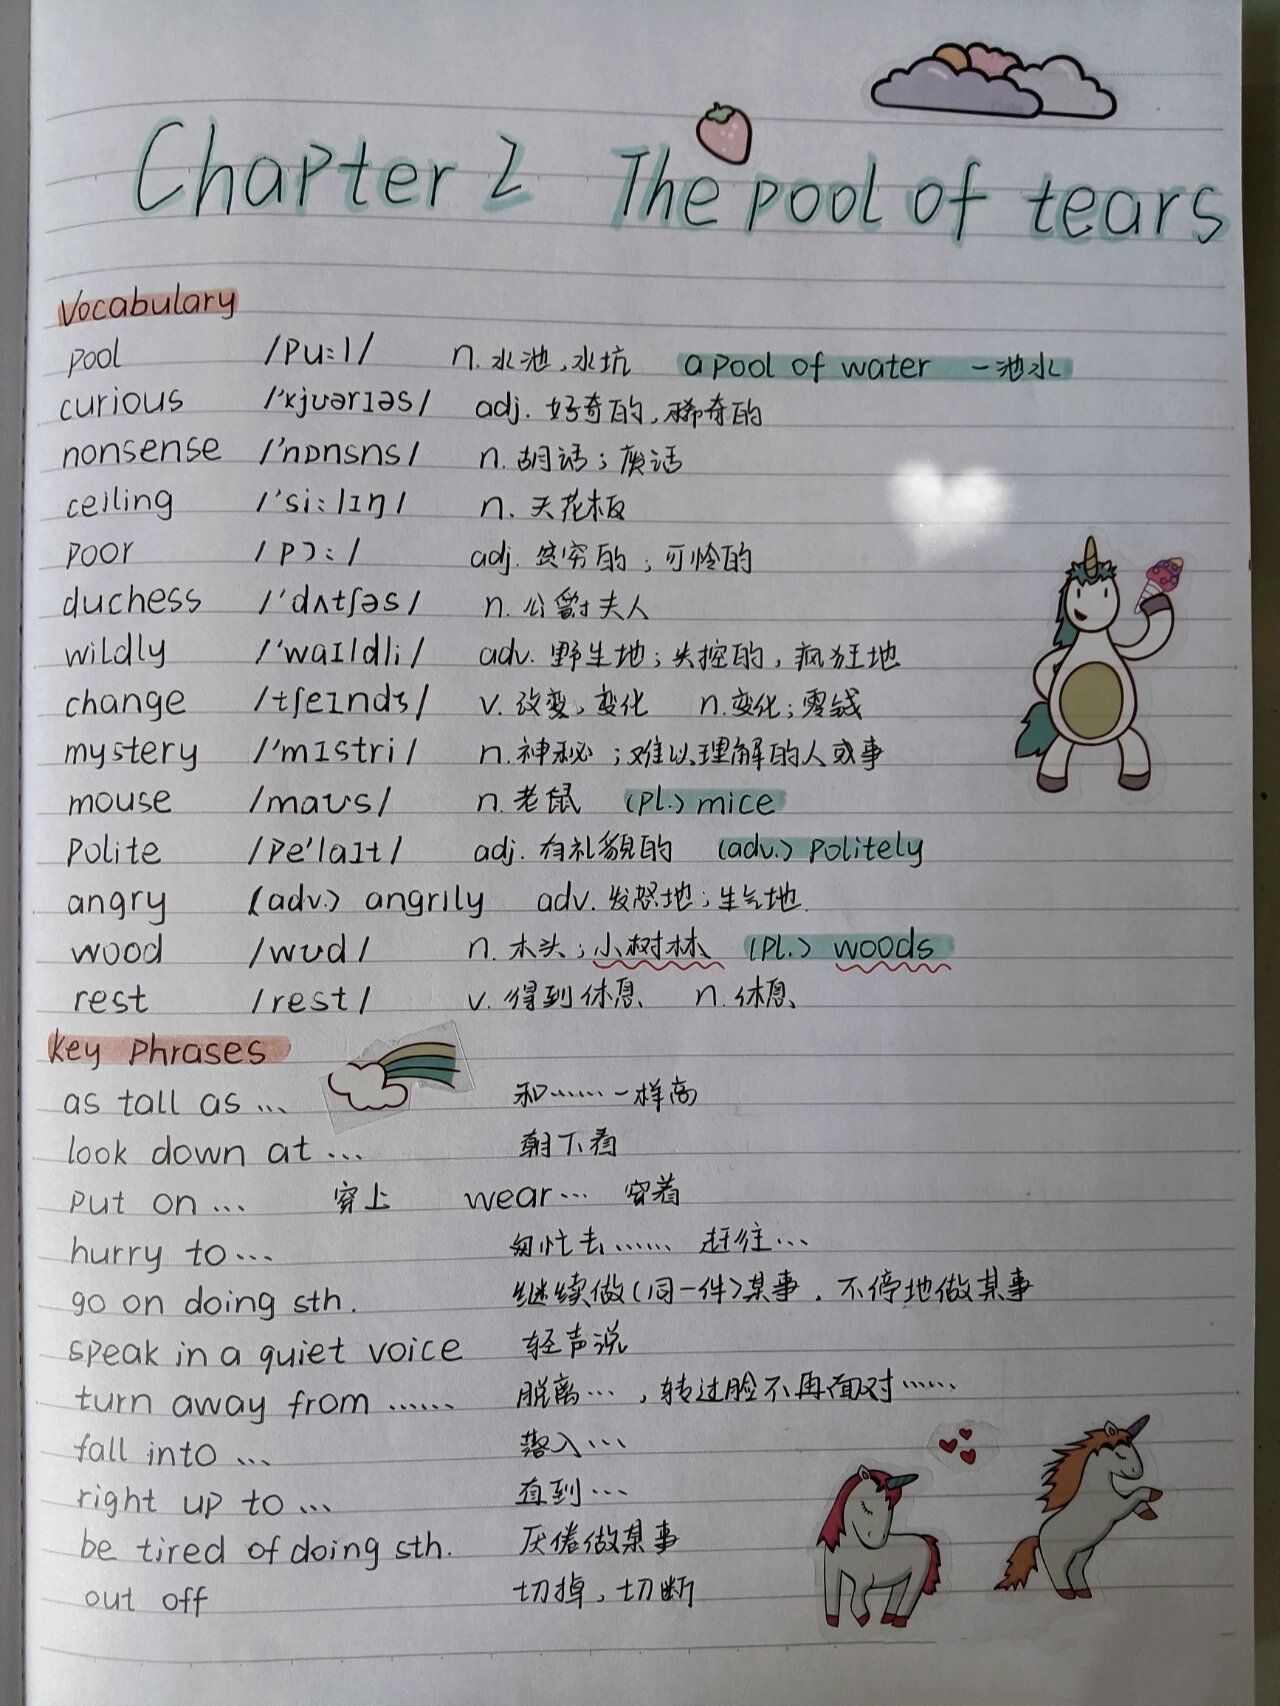 Chapter 2 The pool of tears
Vocabulary
pool /pu:l/ n. 水池,水坑 a pool of water 一池水
curious /'kjʊərɪəs/ adj. 好奇的,稀奇的
nonsense /'nɒnsns/ n. 胡话;废话
ceiling /'si:lɪŋ/ n. 天花板
poor /pɔ:/ adj. 贫穷的;可怜的
duchess /'dʌtʃəs/ n. 公爵夫人
wildly /'waɪldli/ adv. 野生地;失控的,疯狂地
change /tʃeɪndʒ/ v. 改变,变化 n. 变化;零钱
mystery /'mɪstri/ n. 神秘;难以理解的人或事
mouse /maʊs/ n. 老鼠 (pl.) mice
polite /pe'laɪt/ adj. 有礼貌的 (adv.) politely
angry (adv.) angrily adv. 发怒地;生气地.
wood /wʊd/ n. 木头;小树林 (pl.) woods
rest /rest/ v. 得到休息 n. 休息
key phrases
as tall as ... 和……一样高
look down at ... 朝下看
put on ... 穿上 wear... 穿着
hurry to ... 匆忙去…… 赶往...
go on doing sth. 继续做(同一件)某事,不停地做某事
speak in a quiet voice 轻声说
turn away from ...... 脱离...,转过脸不再面对……
fall into ... 落入...
right up to ... 直到...
be tired of doing sth. 厌倦做某事
out off 切掉,切断